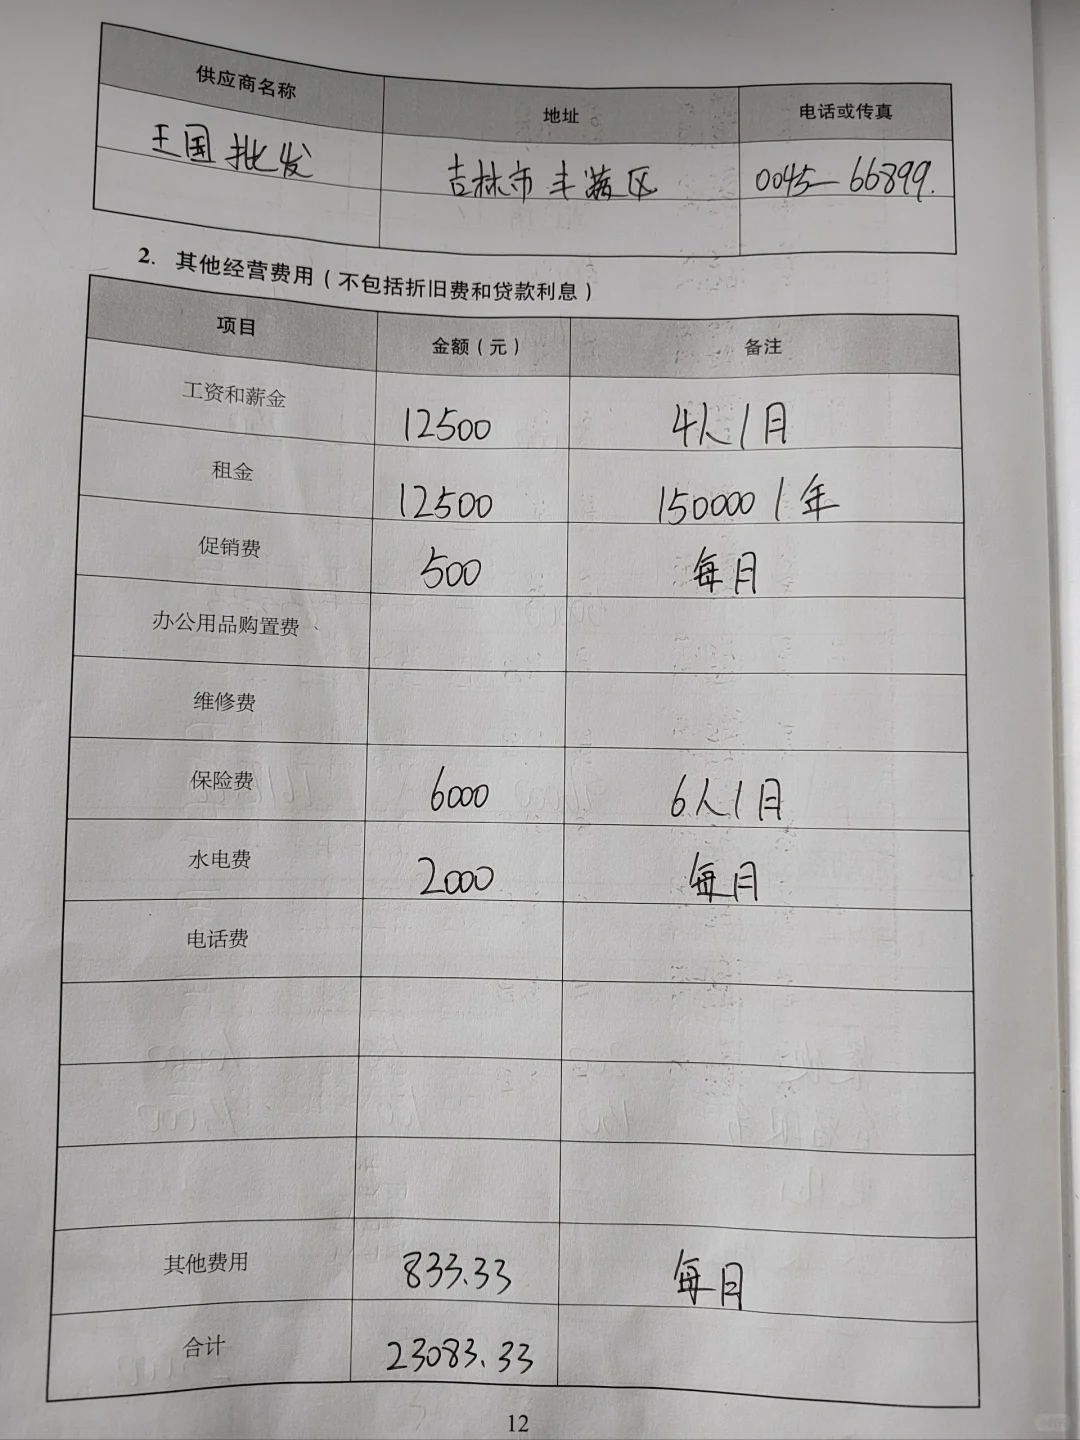 供应商名称 地址 电话或传真
王国批发 吉林市丰满区 0045—66899.
2. 其他经营费用（不包括折旧费和贷款利息）
项目 金额（元） 备注
工资和薪金 12500 4人/月
租金 12500 150000/年
促销费 500 每月
办公用品购置费
维修费
保险费 6000 6人/月
水电费 2000 每月
电话费
其他费用 833.33 每月
合计 23083.33
12